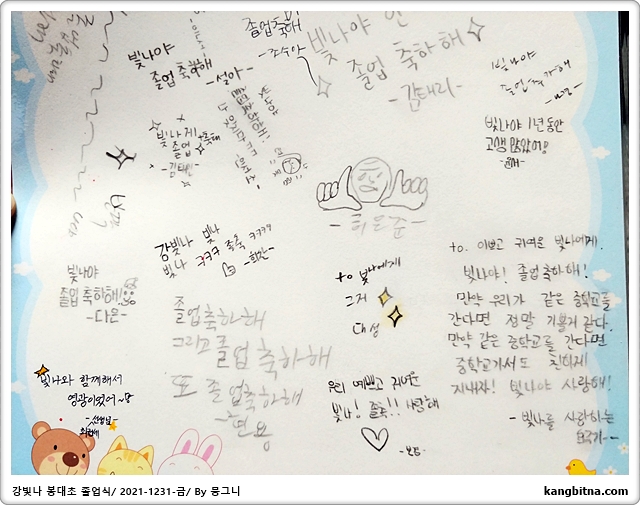 빛나야
졸업 축하해
-설아-
졸업축하해
-조수아-
빛나야
졸업 축하해
-김태리-
빛나야
졸업축하해
빛나야 1년 동안
고생 많았어!
빛나야
졸업축하해!
빛나게
졸업
축하해
-최은준-
강빛나 빛나 졸축 ㅋㅋㅋㅋ
빛나 ㅋㅋㅋ
-희찬-
빛나야
졸업 축하해!
-다은-
to 빛나에게
그저
대성
to. 이쁘고 귀여운 빛나에게.
빛나야! 졸업축하해!
만약 우리가 같은 중학교를
간다면 정말 기쁠거 같다.
만약 같은 중학교를 간다면
중학교가서도 친하게
지내자! 빛나야 사랑해!
-빛나를 사랑하는
졸업축하해
그리고 졸업축하해
또 졸업축하해
-면용
우리 예쁘고 귀여운
빛나! 졸축!! 사랑해
빛나와 함께해서
영광이었어~♡
-선생님-
강빛나 봉대초 졸업식/ 2021-1231-금/ By 뭉그니
kangbitna.com